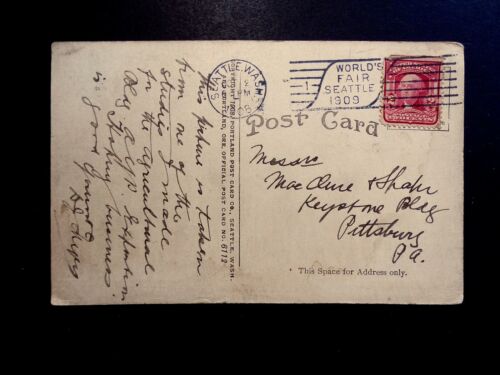 SEATTLE, WASH.
WORLD'S
FAIR
SEATTLE
1909
Post Card
This picture is taken
from one of the
studies I made
for the agricultural
Bldg A Y P Expotion
Hoping business
is good Yours
COPYRIGHT 1908 PORTLAND POST CARD CO., SEATTLE, WASH.
AND PORTLAND, ORE. OFFICIAL POST CARD NO. 6112
Messrs
MacClure & Spahr
Keystone Bldg
Pittsburg
PA.
This Space for Address only.